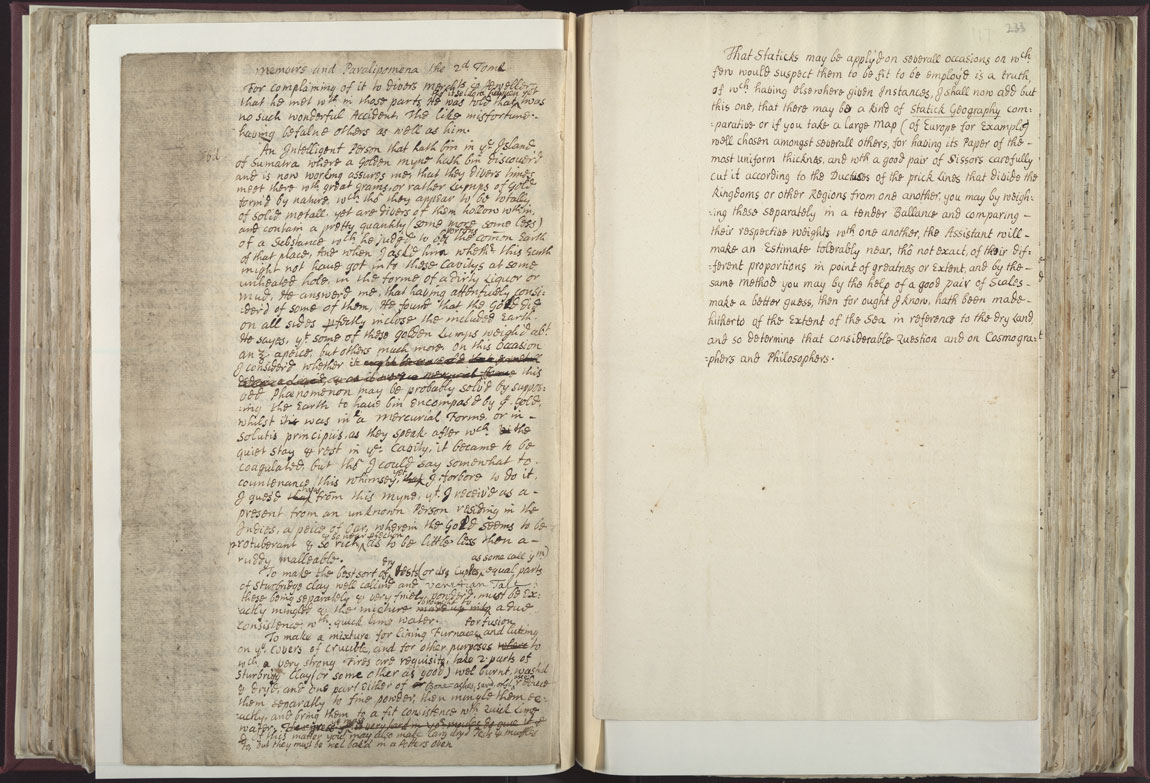 Memoirs and Paralipomena the 2d Tome
For complaining of it to divers merchts & Jewellers
that he met wth in those parts He was told that was
no such wonderful Accident. The like misfortune
having befalne others as well as him.
An Intelligent Person that hath bin in ye Island
of Sumatra where a Golden myne hath bin discover'd
and is now working assures me, that they divers times
meet there wth great grains, or rather Lumps of Gold
form'd by nature, wch tho they appear to be totally
of solid metall. yet are divers of them hollow wthin,
and contain a pretty quantity (some more some less)
of a Substance wch he judg'd to be the comon Earth
of that place, And when I ask'd him whether this Earth
might not have got into these Cavitys at some
unheeded hole, in the forme of a dirty Liquor or
mud, He answerd me, that having attentively consi-
:derd of some of them, He found that the Gold did
on all sides pfectly inclose the included Earth.
He sayes, yt some of these golden Lumps weigh'd abt
an ℥ apeice, but others much more. On this Occasion
I consider'd whether it
this
odd Phænomenon may be probably solv'd by suppos-
:ing the Earth to have bin encompas'd by ye Gold,
whilst it was in a Mercurial Forme, or in -
solutis principiis, as they speak after wch the
quiet stay & rest in ye Cavity, it became to be
coagulated, but tho I could say somewhat to
countenance this whimsey, yet I forbore to do it.
I guess'd from this myne, yt I receiv'd as a -
present from an unknown Person residing in the
Indies, a peice of Oar, wherein the Gold seems to be
protuberant & so rich, as to be little less then a -
ruddy malleable.
To make the best sort of Tests (or dry Cuples, as some call ym) equal parts
of Sturbridge clay well calcined and Venetian Talk
these being separately & very finely powder'd must be Ex-
:actly mingled & the mixture brought to a due
consistence wth quick lime water. for fusion,
To make a mixture for lining Furnaces and luting
on ye covers of crucibles, and for other purposes to
wch a very strong Fires are requisite, take 2 parts of
Sturbridg Clay (or some other as good) wel burnt, washd
& dry'd, and one part either of Bone-ashes, reduce
them separatly to fine powder, then mingle them ex-
:actly, and bring them to a fit consistence wth Quick Lime
water.
Of this matter you may also make Tests & muffles
but they must be wel bak'd in a Potters oven
233
That Staticks may be apply'd on severall occasions on wch
few would suspect them to be fit to be employ'd is a truth,
of wch having elsewhere given Instances, I shall now add but
this one, that there may be a kind of Statick Geography com-
:parative or if you take a large Map (of Europe for Example)
well chosen amongst severall others, for having its Paper of the -
most uniform thicknes, and wth a good pair of Sissors carefully
cut it according to the Ductuses of the prick lines that divide the
Kingdoms or other Regions from one another, you may by weigh-
:ing these separately in a tender Ballance and comparing -
their respective weights wth one another, the Assistant will -
make an Estimate tolerably near, tho not exact, of their dif-
:ferent proportions in point of greatnes or Extent, and by the -
same method you may by the help of a good pair of Scales -
make a better guess, then for ought I know, hath been made -
hitherto of the Extent of the Sea in reference to the dry Land,
and so determine that considerable Question and on Cosmogra-
:phers and Philosophers.